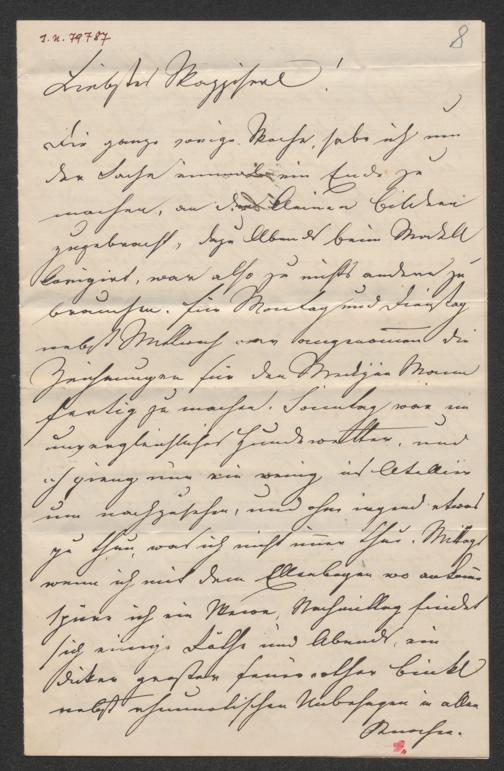 I.N. 79787
8
Liebstes Muzziserl!
Die ganze vorige Woche, habe ich um
der Sache einmal ein Ende zu
machen, an den kleinen Bildern
zugebracht, dazu Abends beim Modell
korigirt, war also zu nichts anderen zu
brauchen. Für Montag und Dienstag
nebst Mittwoch war angenommen die
Zeichnungen für den Medizin Mann
fertig zu machen. Sonntag war ein
unvergleichliches Hundewetter, und
ich gieng nur ein wenig ins Atelier
um nachzusehen, und ohne irgend etwas
zu thun, was ich nicht immer thue. Mittags
wenn ich mit dem Ellenbogen wo
spüre ich ein Nachmittag findet
sich einige Röthe und Abends, ein
dicker großer feuerrother Binkl
nebst rheumatischen Unbehagen in allen
Knochen.